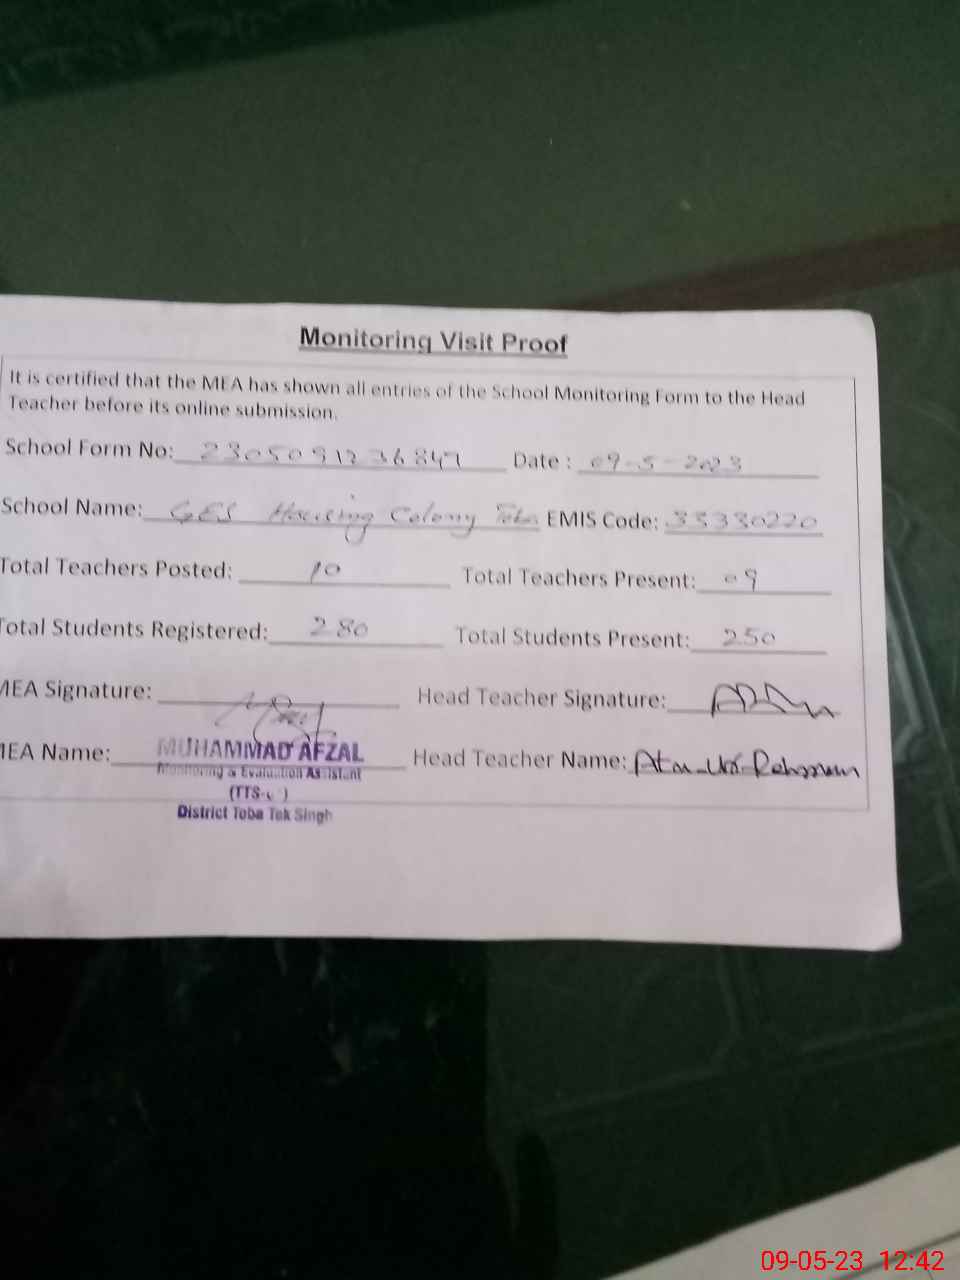 Monitoring Visit Proof
It is certified that the MEA has shown all entries of the School Monitoring Form to the Head
Teacher before its online submission.
School Form No: 2305091236847 Date : 09-5-2023
School Name: GES Housing Colony Toba EMIS Code: 33330220
Total Teachers Posted: 10 Total Teachers Present: 09
Total Students Registered: 280 Total Students Present: 250
MEA Signature: Head Teacher Signature:
MEA Name: MUHAMMAD AFZAL Head Teacher Name: Atta-Ur-Rehman
Monitoring & Evaluation Assistant
(TTS- )
District Toba Tek Singh
09-05-23 12:42